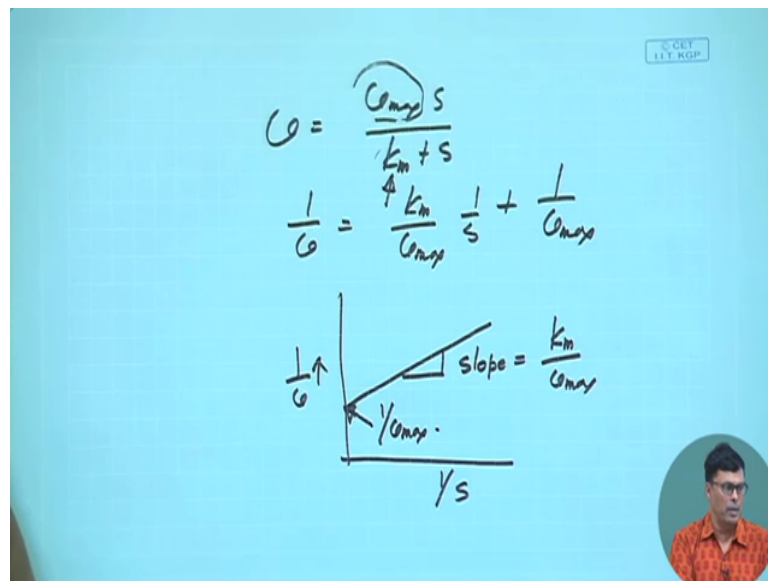 © CET
I.I.T. KGP
ϑ = ϑmax s / km + s
1/ϑ = km/ϑmax 1/s + 1/ϑmax
1/ϑ ↑
slope = km/ϑmax
1/ϑmax.
1/s